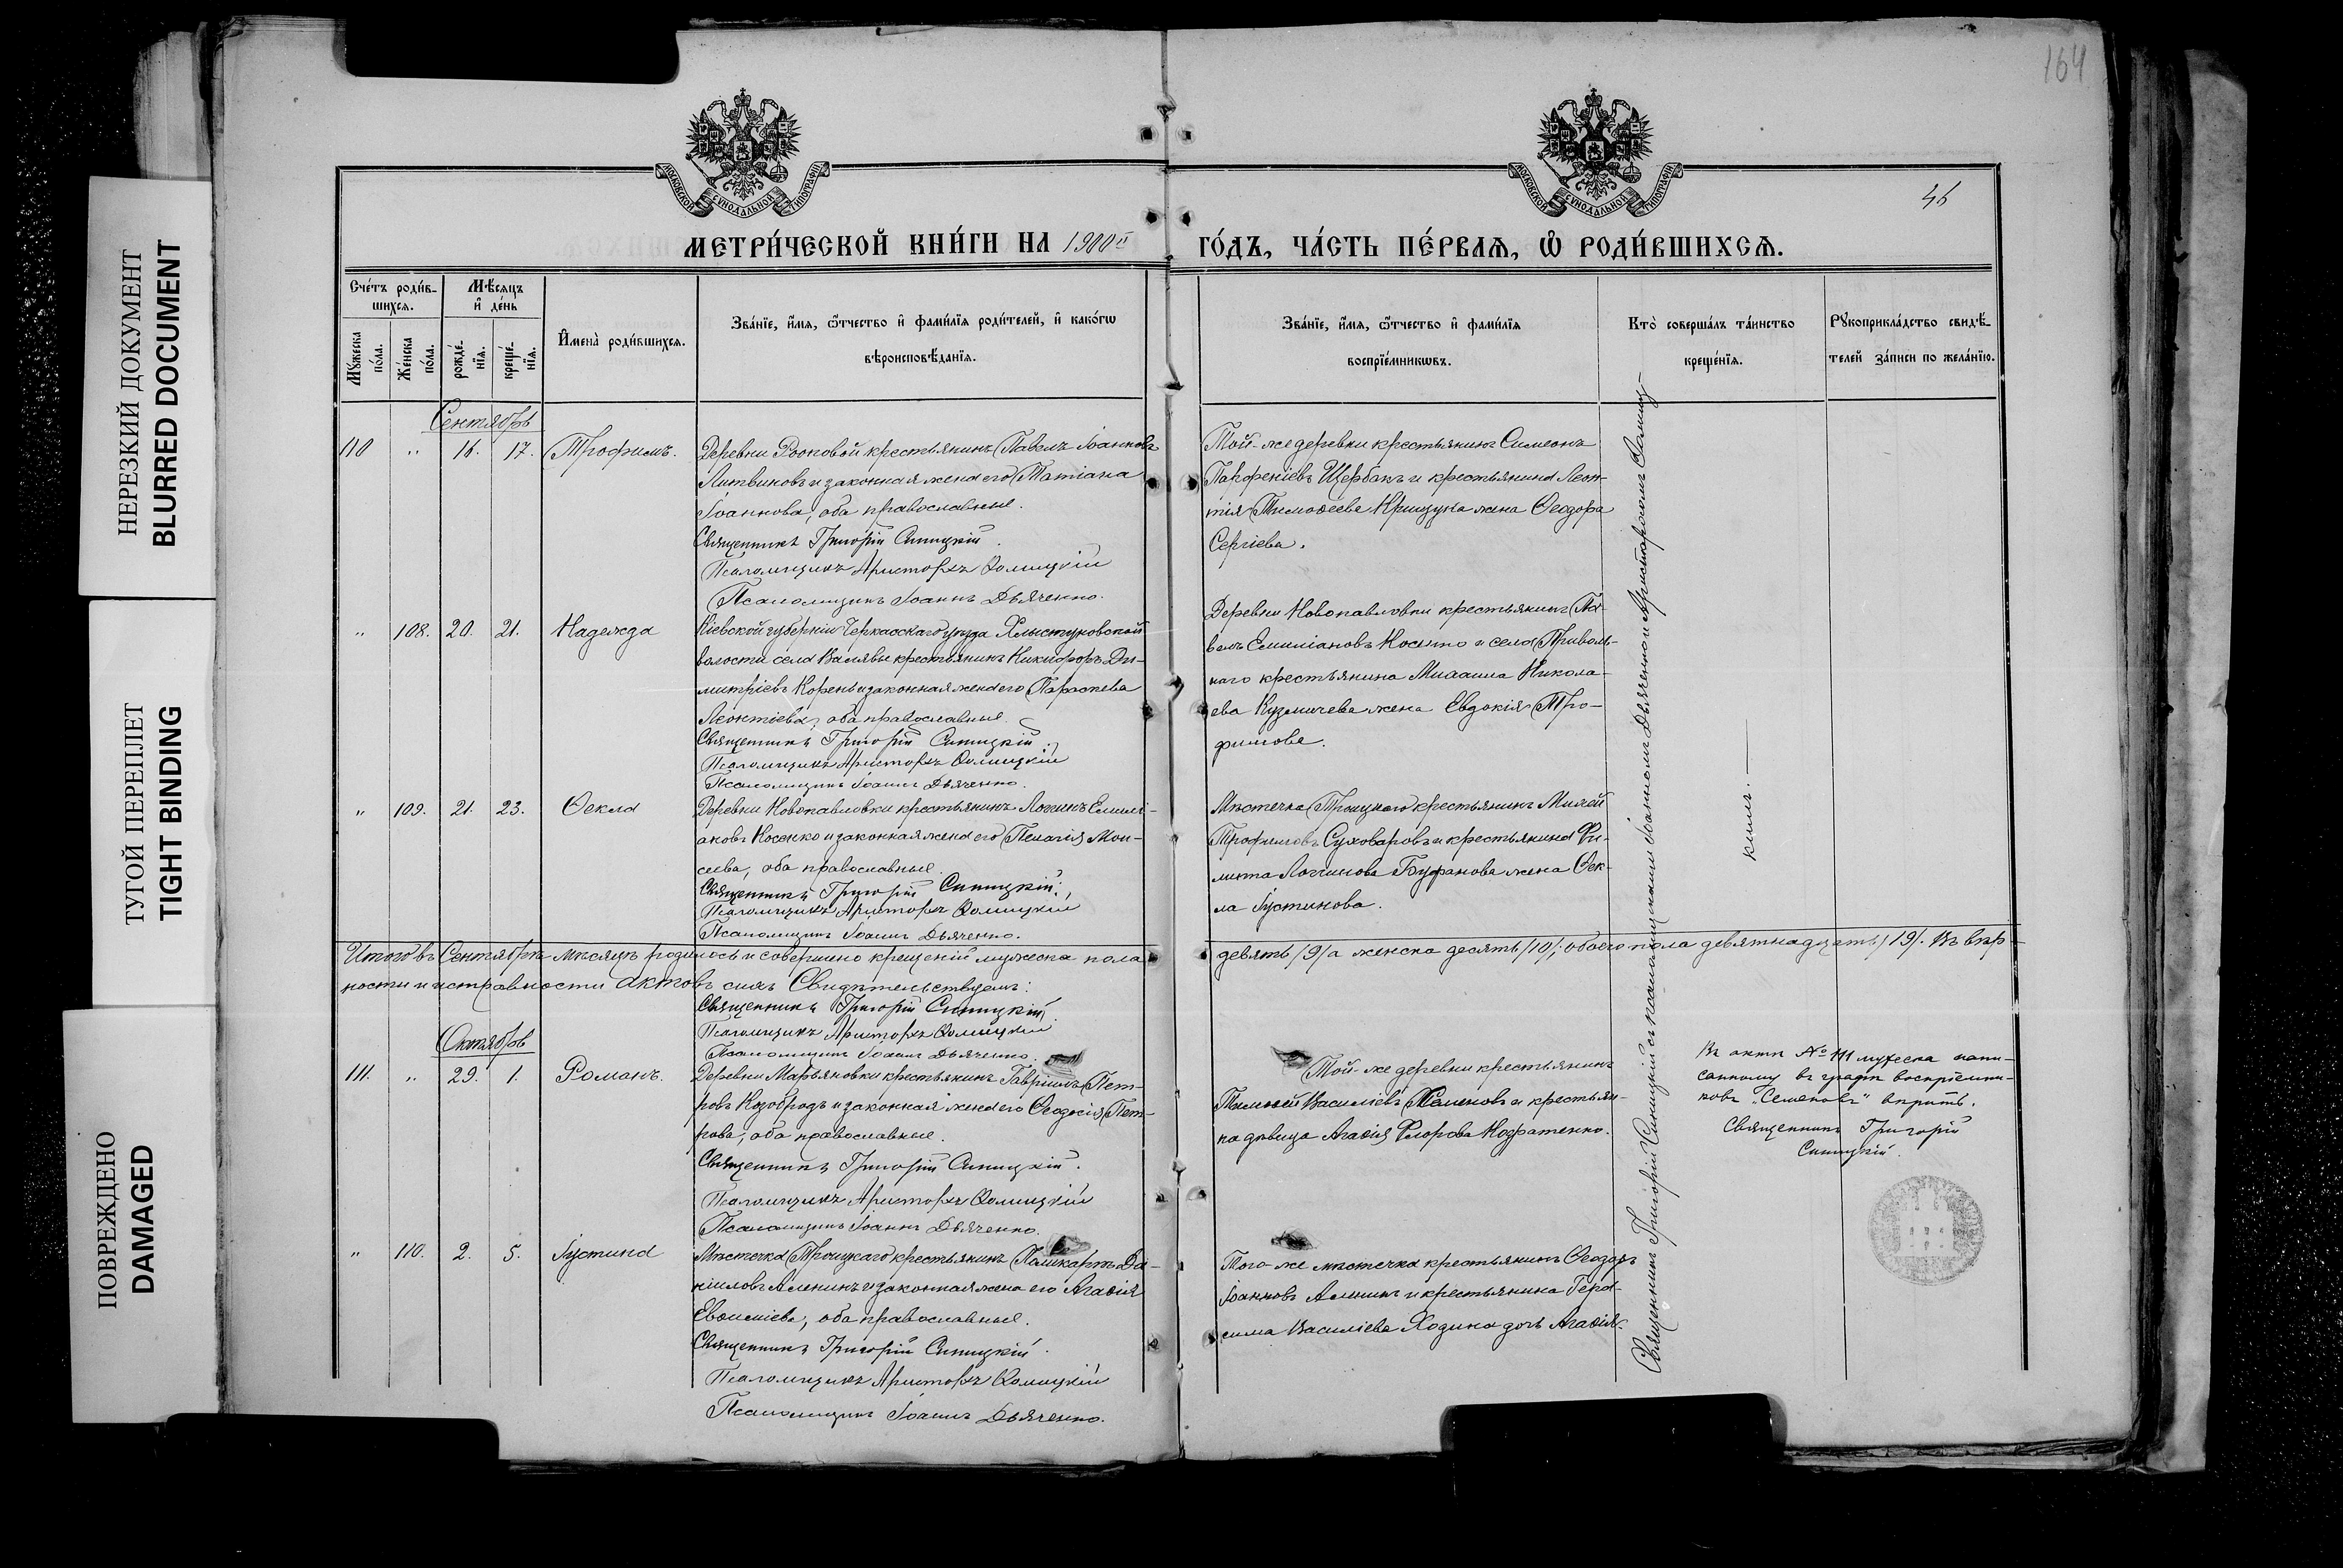 НЕРЕЗКИЙ ДОКУМЕНТ
BLURRED DOCUMENT
ТУГОЙ ПЕРЕПЛЕТ
TIGHT BINDING
ПОВРЕЖДЕНО
DAMAGED
164
46
МОСКОВСКОЙ СѴНОДАЛЬНОЙ ТИПОГРАФІИ
МОСКОВСКОЙ СѴНОДАЛЬНОЙ ТИПОГРАФІИ
МЕТРИ́ЧЕСКОЙ КНИ́ГИ НА 1900й ГО́ДЪ, ЧА́СТЬ ПЕ́РВАѦ, Ѽ РОДИ́ВШИХСѦ.
Сче́тъ роди́в-
шихсѧ.
Мѣ́сѧцъ
и҆ де́нь
Мꙋ́жеска по́ла.
Же́нска по́ла.
рожде́-нїѧ.
креще́-нїѧ.
И҆мена̀ роди́вшихсѧ.
Зва́нїе, и҆́мѧ, ѻ҆́тчество и҆ фами́лїѧ роди́телей, и҆ како́гѡ
вѣроисповѣ́данїѧ.
Зва́нїе, и҆́мѧ, ѻ҆́тчество и҆ фами́лїѧ
воспрїе́мникѡвъ.
Кто̀ соверша́лъ та́инство
креще́нїѧ.
Рꙋкоприкла́дство свидѣ́-
телей за́писи по жела́нїю.
Сентябрь
110 " 16. 17. Трофимъ.
Деревни Рооновой крестьянинъ Павелъ Іоанновъ
Литвиновъ и законная жена его Татіана
Іоаннова, оба православные.
Священникъ Григорій Синицкій.
Псаломщикъ Аристархъ Ѳомицкій
Псаломщикъ Іоаннъ Дьяченко.
Той-же деревни крестьянинъ Симеонъ
Парфеніевъ Щербакъ и крестьянина Леон-
тія Тимоѳеева Крищуна жена Ѳеодора
Сергіева.
" 108. 20. 21. Надежда
Кіевской губерніи Черкасскаго уѣзда Хлыстуновской
волости села Валявы крестьянинъ Никифоръ Ди-
митріевъ Корень и законная жена его Параскева
Леонтіева, оба православные.
Священникъ Григорій Синицкій.
Псаломщикъ Аристархъ Ѳомицкій
Псаломщикъ Іоаннъ Дьяченко.
Деревни Новопавловки крестьянинъ Па-
велъ Емиліановъ Носенко и села Приволь-
наго крестьянина Михаила Никола-
ева Кузмичева жена Евдокія Тро-
фимова.
" 109. 21. 23. Ѳекла
Деревни Новопавловки крестьянинъ Логинъ Емили-
ановъ Носенко и законная жена его Пелагія Мои-
сеева, оба православные.
Священникъ Григорій Синицкій.
Псаломщикъ Аристархъ Ѳомицкій
Псаломщикъ Іоаннъ Дьяченко.
Мѣстечка Троицкаго крестьянинъ
Трофимовъ Суховаровъ и крестьянина Фи-
липпа Логгинова жена Ѳек-
ла Іустинова.
Итого въ Сентябрѣ мѣсяцѣ родилось и совершено крещеній мужеска пола девять /9/ а женска десять /10/, обоего пола девятнадцать /19/. Въ вѣр-
ности и исправности актовъ сихъ Свидѣтельствуемъ:
Священникъ Григорій Синицкій.
Псаломщикъ Аристархъ Ѳомицкій
Псаломщикъ Іоаннъ Дьяченко.
Октябрь
111. " 29. 1. Романъ.
Деревни Марьяновки крестьянинъ Гавріилъ Пет-
ровъ Козобродъ и законная жена его Ѳеодосія Пет-
рова, оба православные.
Священникъ Григорій Синицкій.
Псаломщикъ Аристархъ Ѳомицкій
Псаломщикъ Іоаннъ Дьяченко.
Той-же деревни крестьянинъ
Тимоѳей Василіевъ Семеновъ и крестьян-
ка дѣвица Агаѳія Флорова
Въ актѣ № 111 мужеска напи-
санному въ графѣ воспріемни-
ковъ "Семеновъ" вѣрить.
Священникъ Григорій
Синицкій.
" 110. 2. 5. Іустина
Мѣстечка Троицкаго крестьянинъ Поликарпъ Да-
ніиловъ Аленинъ и законная жена его Агаѳія
Евѳиміева, оба православные.
Священникъ Григорій Синицкій.
Псаломщикъ Аристархъ Ѳомицкій
Псаломщикъ Іоаннъ Дьяченко.
Того-же мѣстечка крестьянинъ Ѳеодоръ
Іоанновъ Аленинъ и крестьянина Гера-
сима Василіева Ходина дочь Агаѳія.
Священникъ Григорій Синицкій съ псаломщиками Іоанномъ Дьяченко и Аристархомъ Ѳомиц-
кимъ.